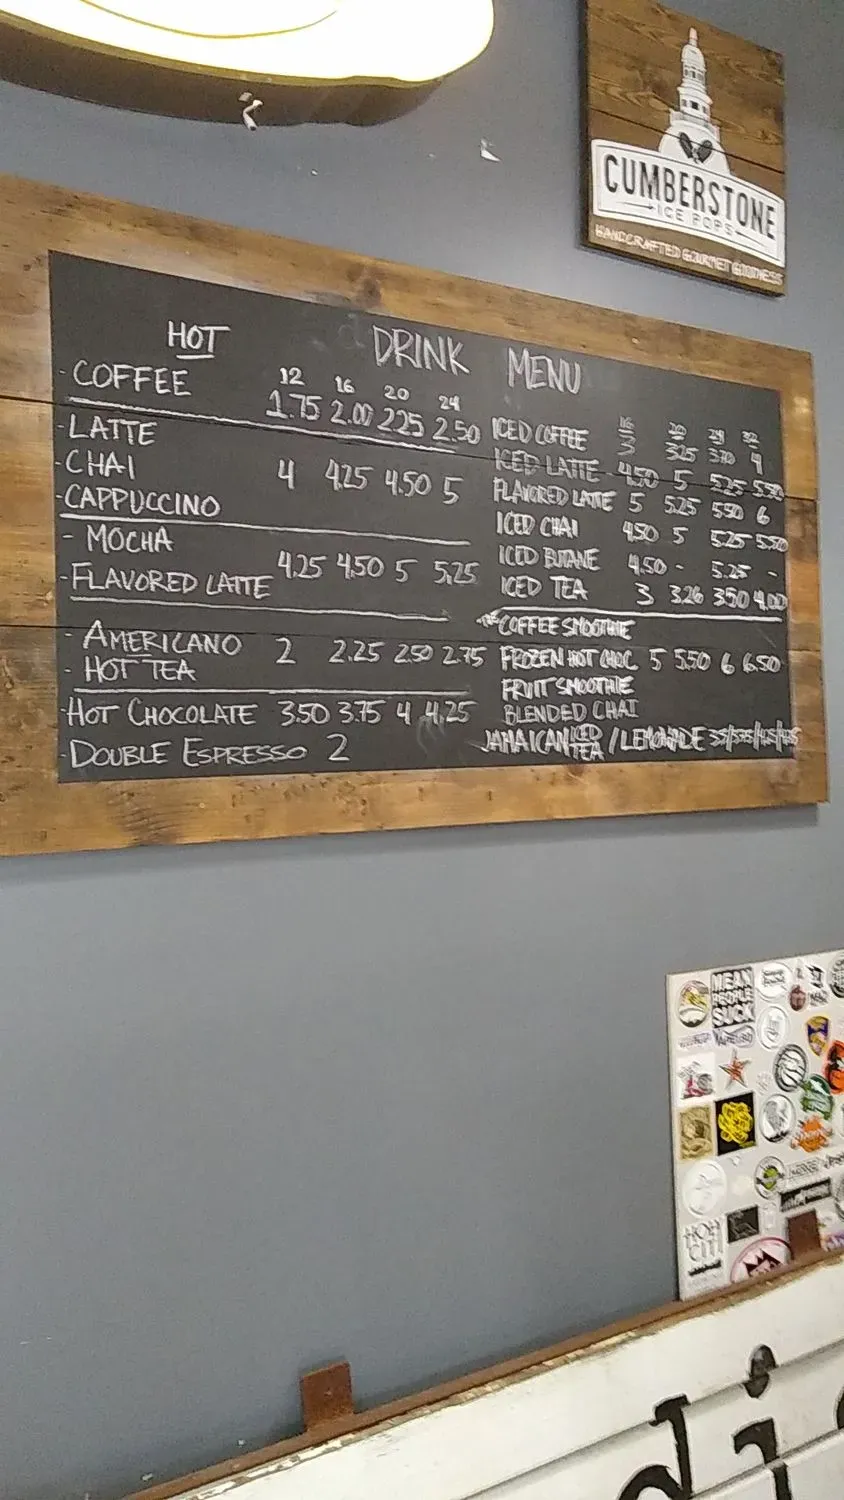 CUMBERSTONE
ICE POPS
HANDCRAFTED GOURMET GOODNESS
DRINK MENU
HOT
12 16 20 24
- COFFEE 1.75 2.00 2.25 2.50
- LATTE
- CHAI 4 4.25 4.50 5
- CAPPUCCINO
- MOCHA
- FLAVORED LATTE 4.25 4.50 5 5.25
- AMERICANO 2 2.25 2.50 2.75
- HOT TEA
- HOT CHOCOLATE 3.50 3.75 4 4.25
- DOUBLE ESPRESSO 2
16 20 24 32
ICED COFFEE 3 3.25 3.70 4
ICED LATTE 4.50 5 5.25 5.50
FLAVORED LATTE 5 5.25 5.50 6
ICED CHAI 4.50 5 5.25 5.50
ICED BUTANE 4.50 - 5.25 -
ICED TEA 3 3.26 3.50 4.00
COFFEE SMOOTHIE
FROZEN HOT CHOC 5 5.50 6 6.50
FRUIT SMOOTHIE
BLENDED CHAI
JAMAICAN ICED TEA / LEMONADE
MEAN
PEOPLE
SUCK
di